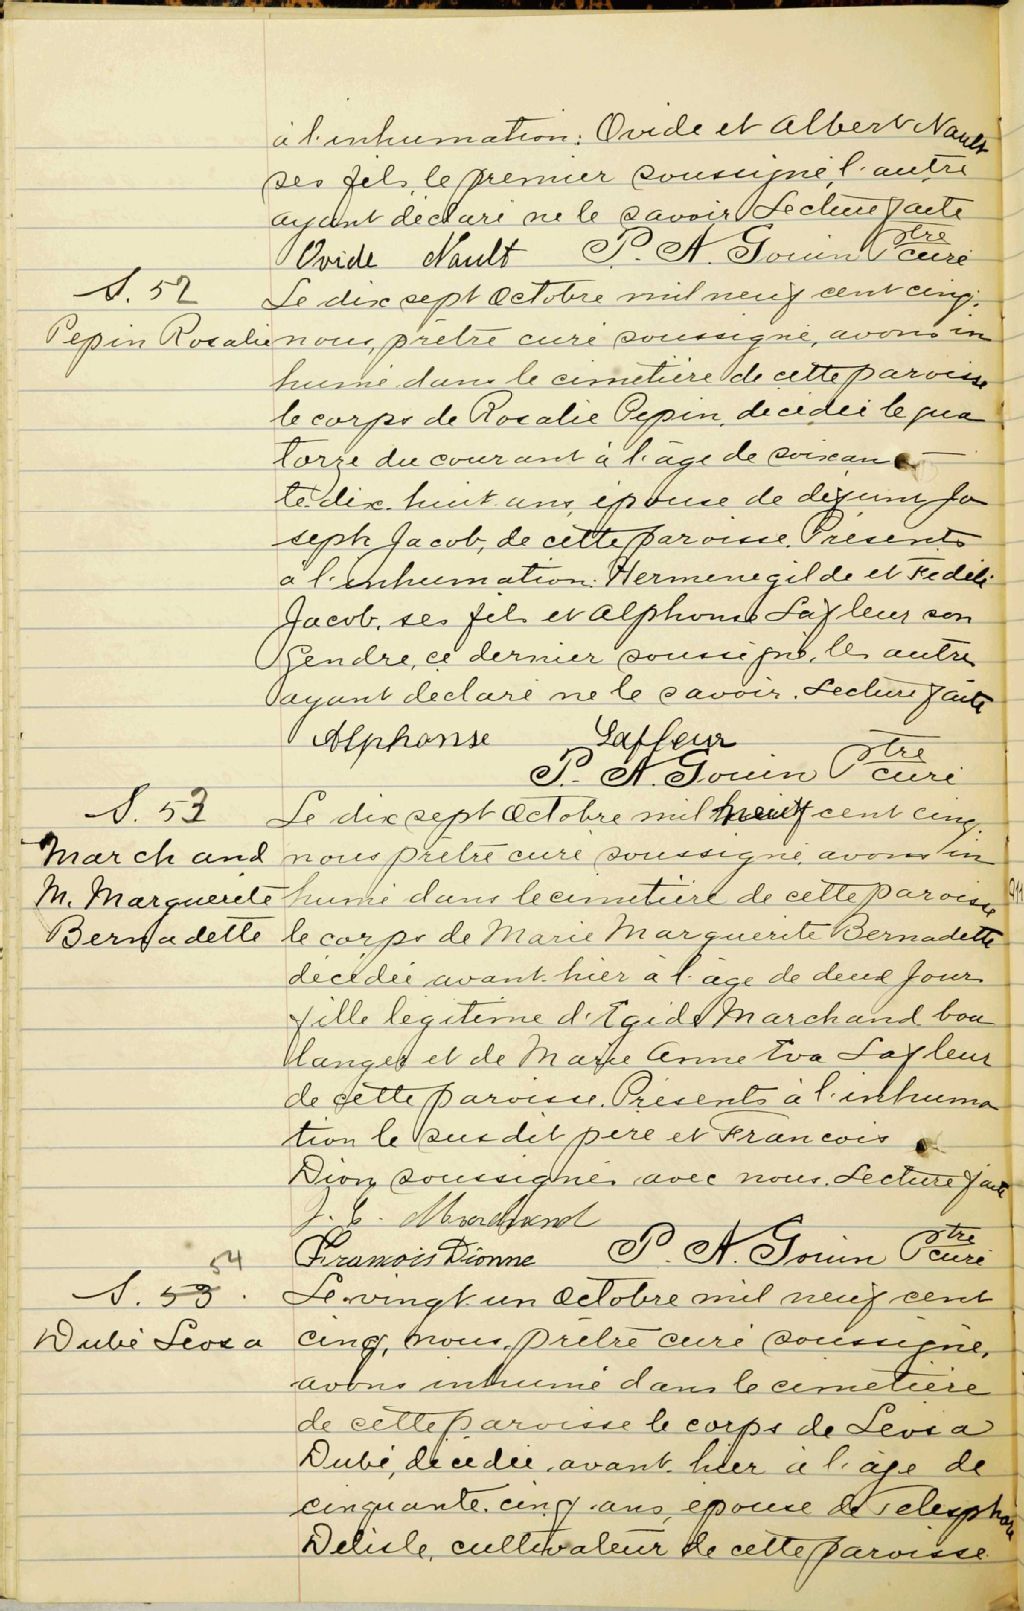 à l'inhumation: Ovide et Albert Nault
ses fils, le premier soussigné, l'autre
ayant déclaré ne le savoir. Lecture faite
Ovide Nault P. A. Gouin Ptre
curé
S. 52
Pepin Rosalie
Le dix sept Octobre mil neuf cent cinq,
nous, prêtre curé soussigné, avons in
humé dans le cimetière de cette paroisse
le corps de Rosalie Pepin, décédée le qua
torze du courant à l'âge de soixan
te-dix-huit ans, épouse de défunt Jo
seph Jacob, de cette paroisse. Présents
à l'inhumation: Hermenegilde et Fedéli
Jacob, ses fils et Alphonse Lafleur son
gendre, ce dernier soussigné, les autres
ayant déclaré ne le savoir. Lecture faite
Alphonse Lafleur
P. A. Gouin Ptre
curé
S. 53
Marchand
M. Marguerite
Bernadette
Le dix sept Octobre mil neuf cent cinq,
nous prêtre curé soussigné, avons in
humé dans le cimetière de cette paroisse
le corps de Marie Marguerite Bernadette
décédée avant-hier à l'âge de deux jours
fille légitime d'Egide Marchand bou
langer et de Marie Anne Eva Lafleur
de cette paroisse. Présents à l'inhuma
tion le susdit père et Francois
Dion soussignés avec nous. Lecture faite
J. E. Marchand
François Dionne P. A. Gouin Ptre
curé
54
S. 53.
Dubé Leosa
Le vingt-un Octobre mil neuf cent
cinq, nous, prêtre curé soussigné,
avons inhumé dans le cimetière
de cette paroisse le corps de Leosa
Dubé, décédée avant-hier à l'âge de
cinquante-cinq ans, épouse de Telesphore
Delisle, cultivateur de cette paroisse